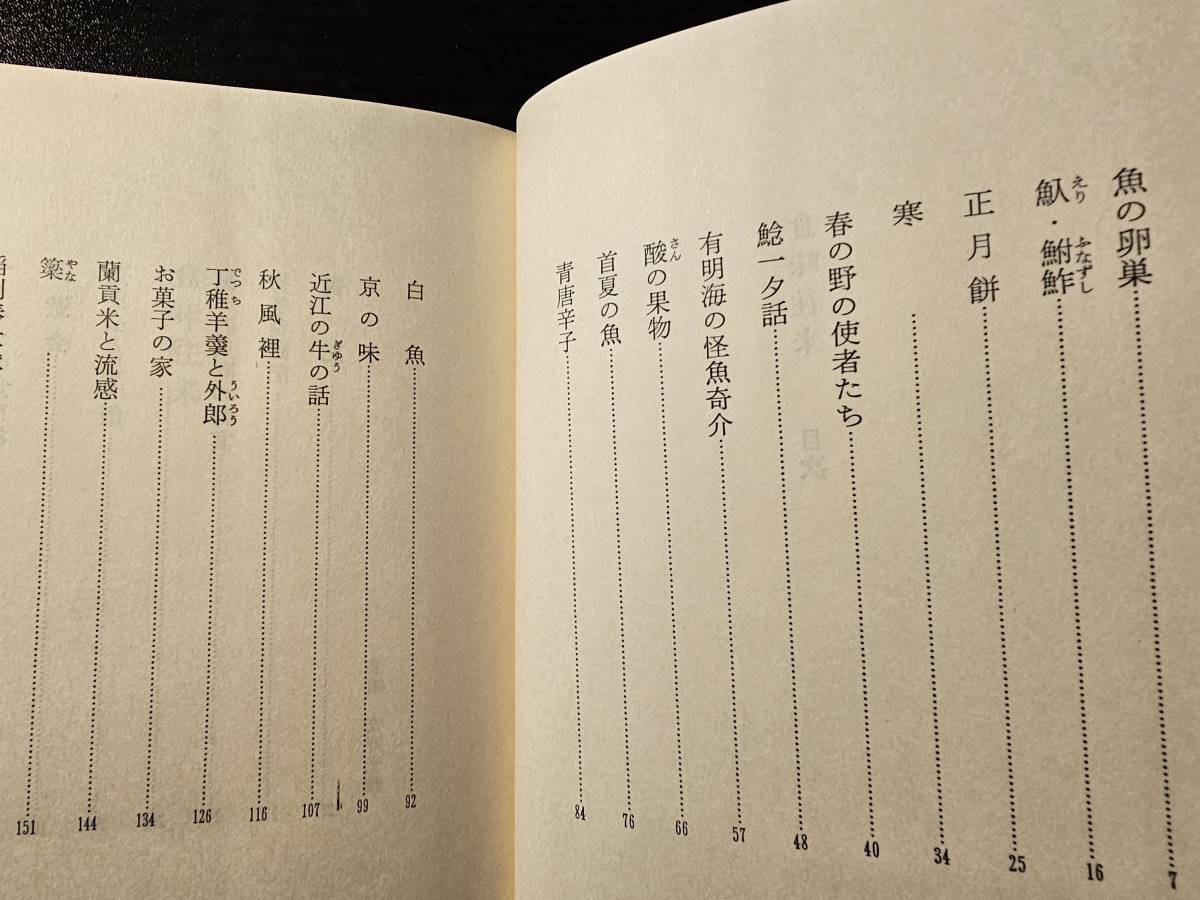 魚の卵巣……………7
魞・鮒鮓……………16
えり
ふなずし
正月餅……………25
寒……………34
春の野の使者たち……………40
鯰一夕話……………48
有明海の怪魚奇介……………57
酸の果物……………66
さん
首夏の魚……………76
青唐辛子……………84
白魚……………92
京の味……………99
近江の牛の話……………107
ぎゆう
秋風裡……………116
丁稚羊羹と外郎……………126
でっち
ういろう
お菓子の家……………134
蘭貢米と流感……………144
簗……………151
やな